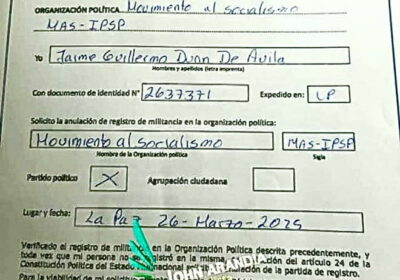 ORGANIZACIÓN POLÍTICA: Movimiento al socialismo
MAS-IPSP
Yo Jaime Guillermo Dunn De Avila
Nombres y apellidos (letra imprenta)
Con documento de identidad N° 2637371 Expedido en: LP
Solicito la anulación de registro de militancia en la organización política:
Movimiento al socialismo MAS-IPSP
Nombre de la Organización política Sigla
Partido político X Agrupación ciudadana
Lugar y fecha: La Paz 26-Marzo-2025
Verificado el registro de en la Organización Política descrita precedentemente, y
toda vez que mi persona no registró en la misma, en aplicación del artículo 24 de la
Constitución Política del Estado anulación de la partida de registro.
Para la viabilidad de mi